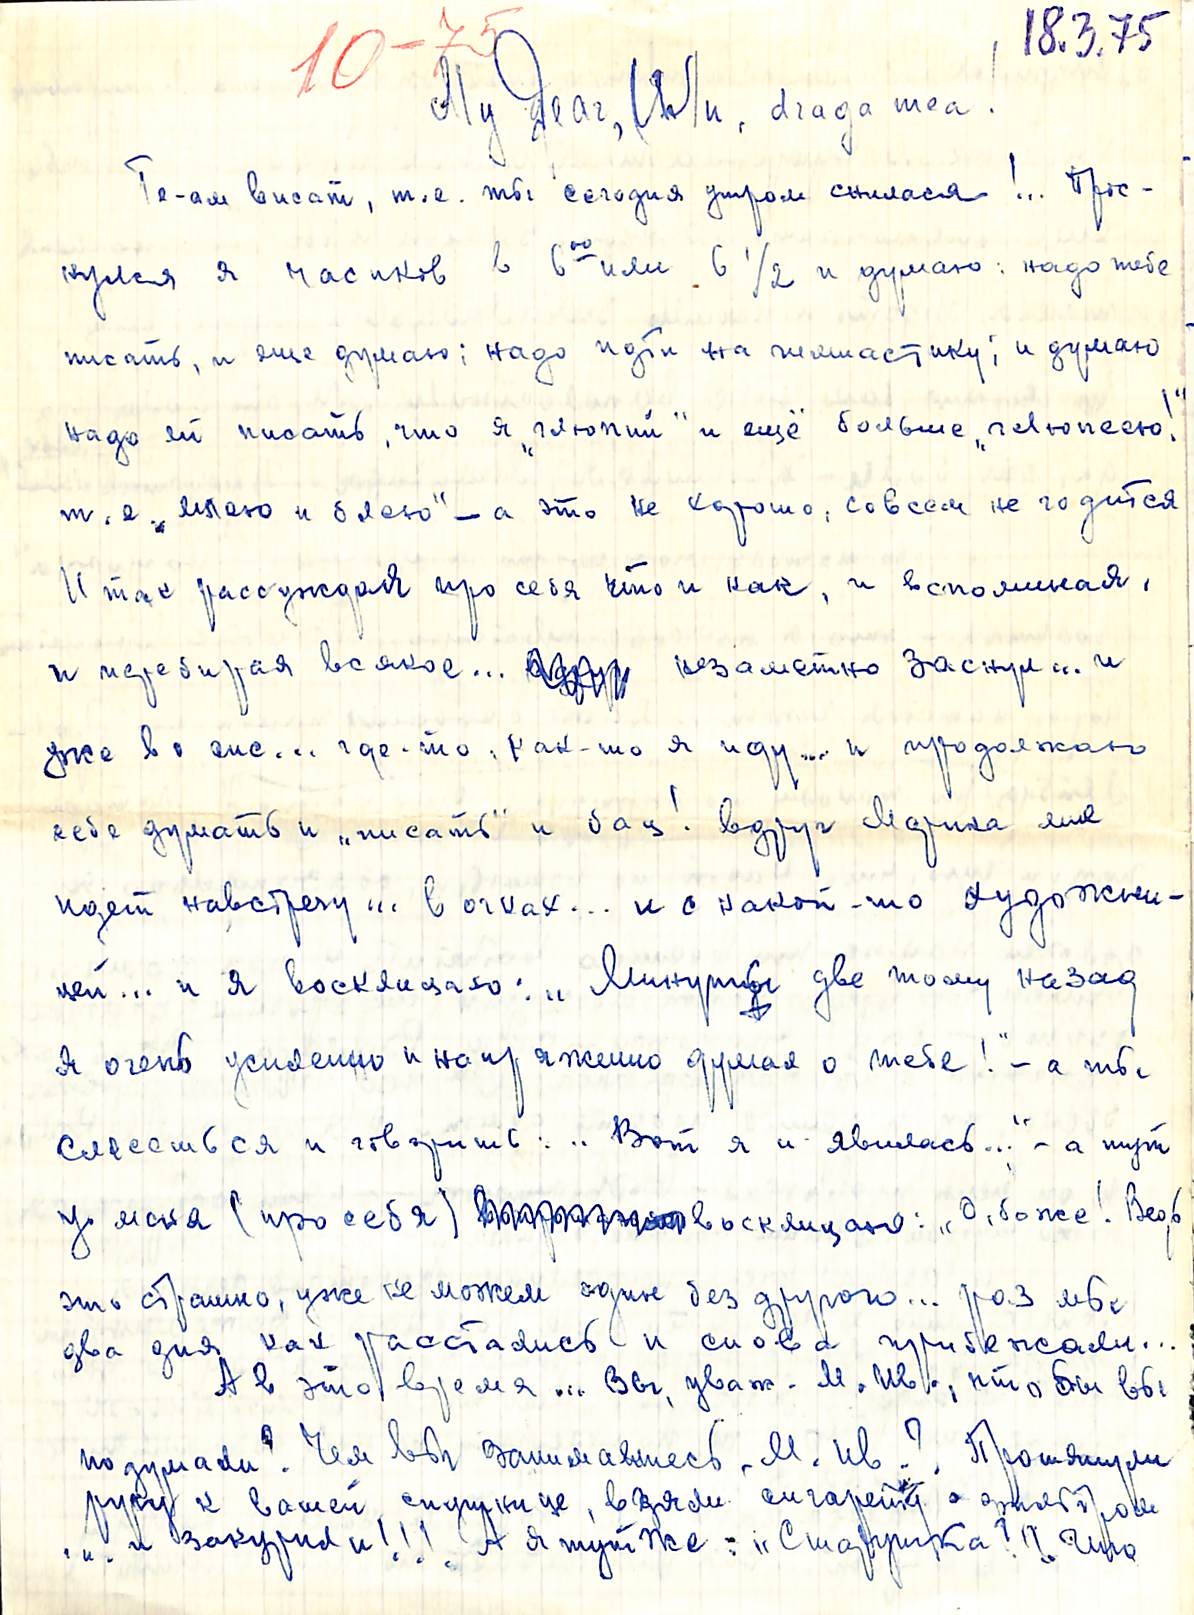 10-75
18.3.75
My Dear, draga mea!
Te-am висат, т.е. ты сегодня утром снилася!... Прос-
нулся я часиков в 6⁰⁰ или 6 1/2 и думаю: надо тебе
писать, и еще думаю: надо идти на гимнастику; и думаю
надо ей писать, что я „глюпий" и ещё больше „глюпею!"
т.е. и блею" – а это не хорошо, совсем не годится
И так рассуждая про себя что и как, и вспоминая,
и перебирая всякое... незаметно заснул... и
уже во сне... где-то, как-то я иду... и продолжаю
себе думать и „писать" и бац! вдруг Марина мне
идет навстречу... в очках... и с какой-то художни-
цей... и я восклицаю: „Минуты две тому назад
я очень усиленно и напряженно думал о тебе!" – а ты
смеешься и говоришь: „Вот я и явилась..." – а тут
у меня (про себя) восклицаю: „О, боже! Ведь
это страшно, уже не можем один без другого... раз мы
два дня как расстались и снова прибежали...
А в это время... Вы, уваж. М. Ив., что бы вы
подумали? Чем вы занимались, М. Ив.? Протянули
руку к вашей спутнице, взяли сигарету с
... и закурили!!! А я тут же: „Старушка?! Что